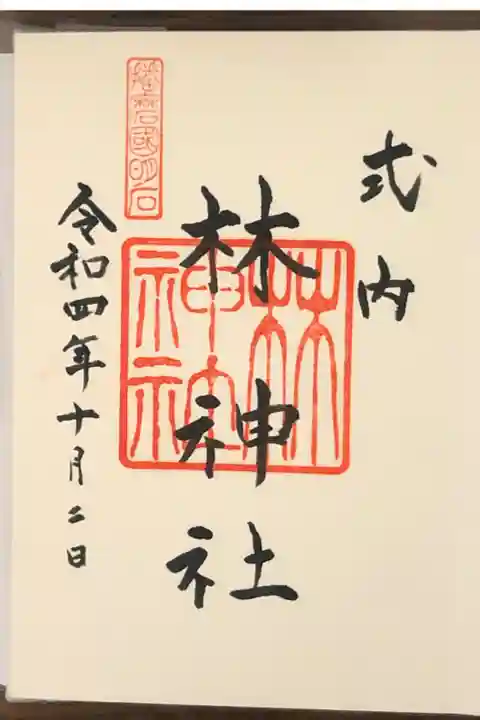 式内
林神社
林神社
播磨國明石
令和四年十月二日